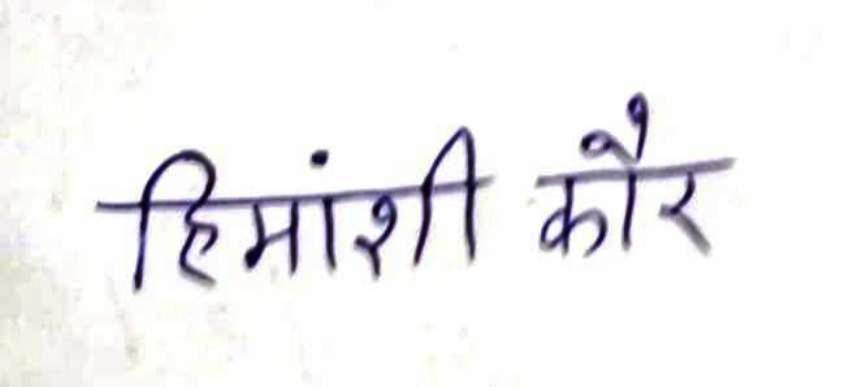 हिमांशी कौर